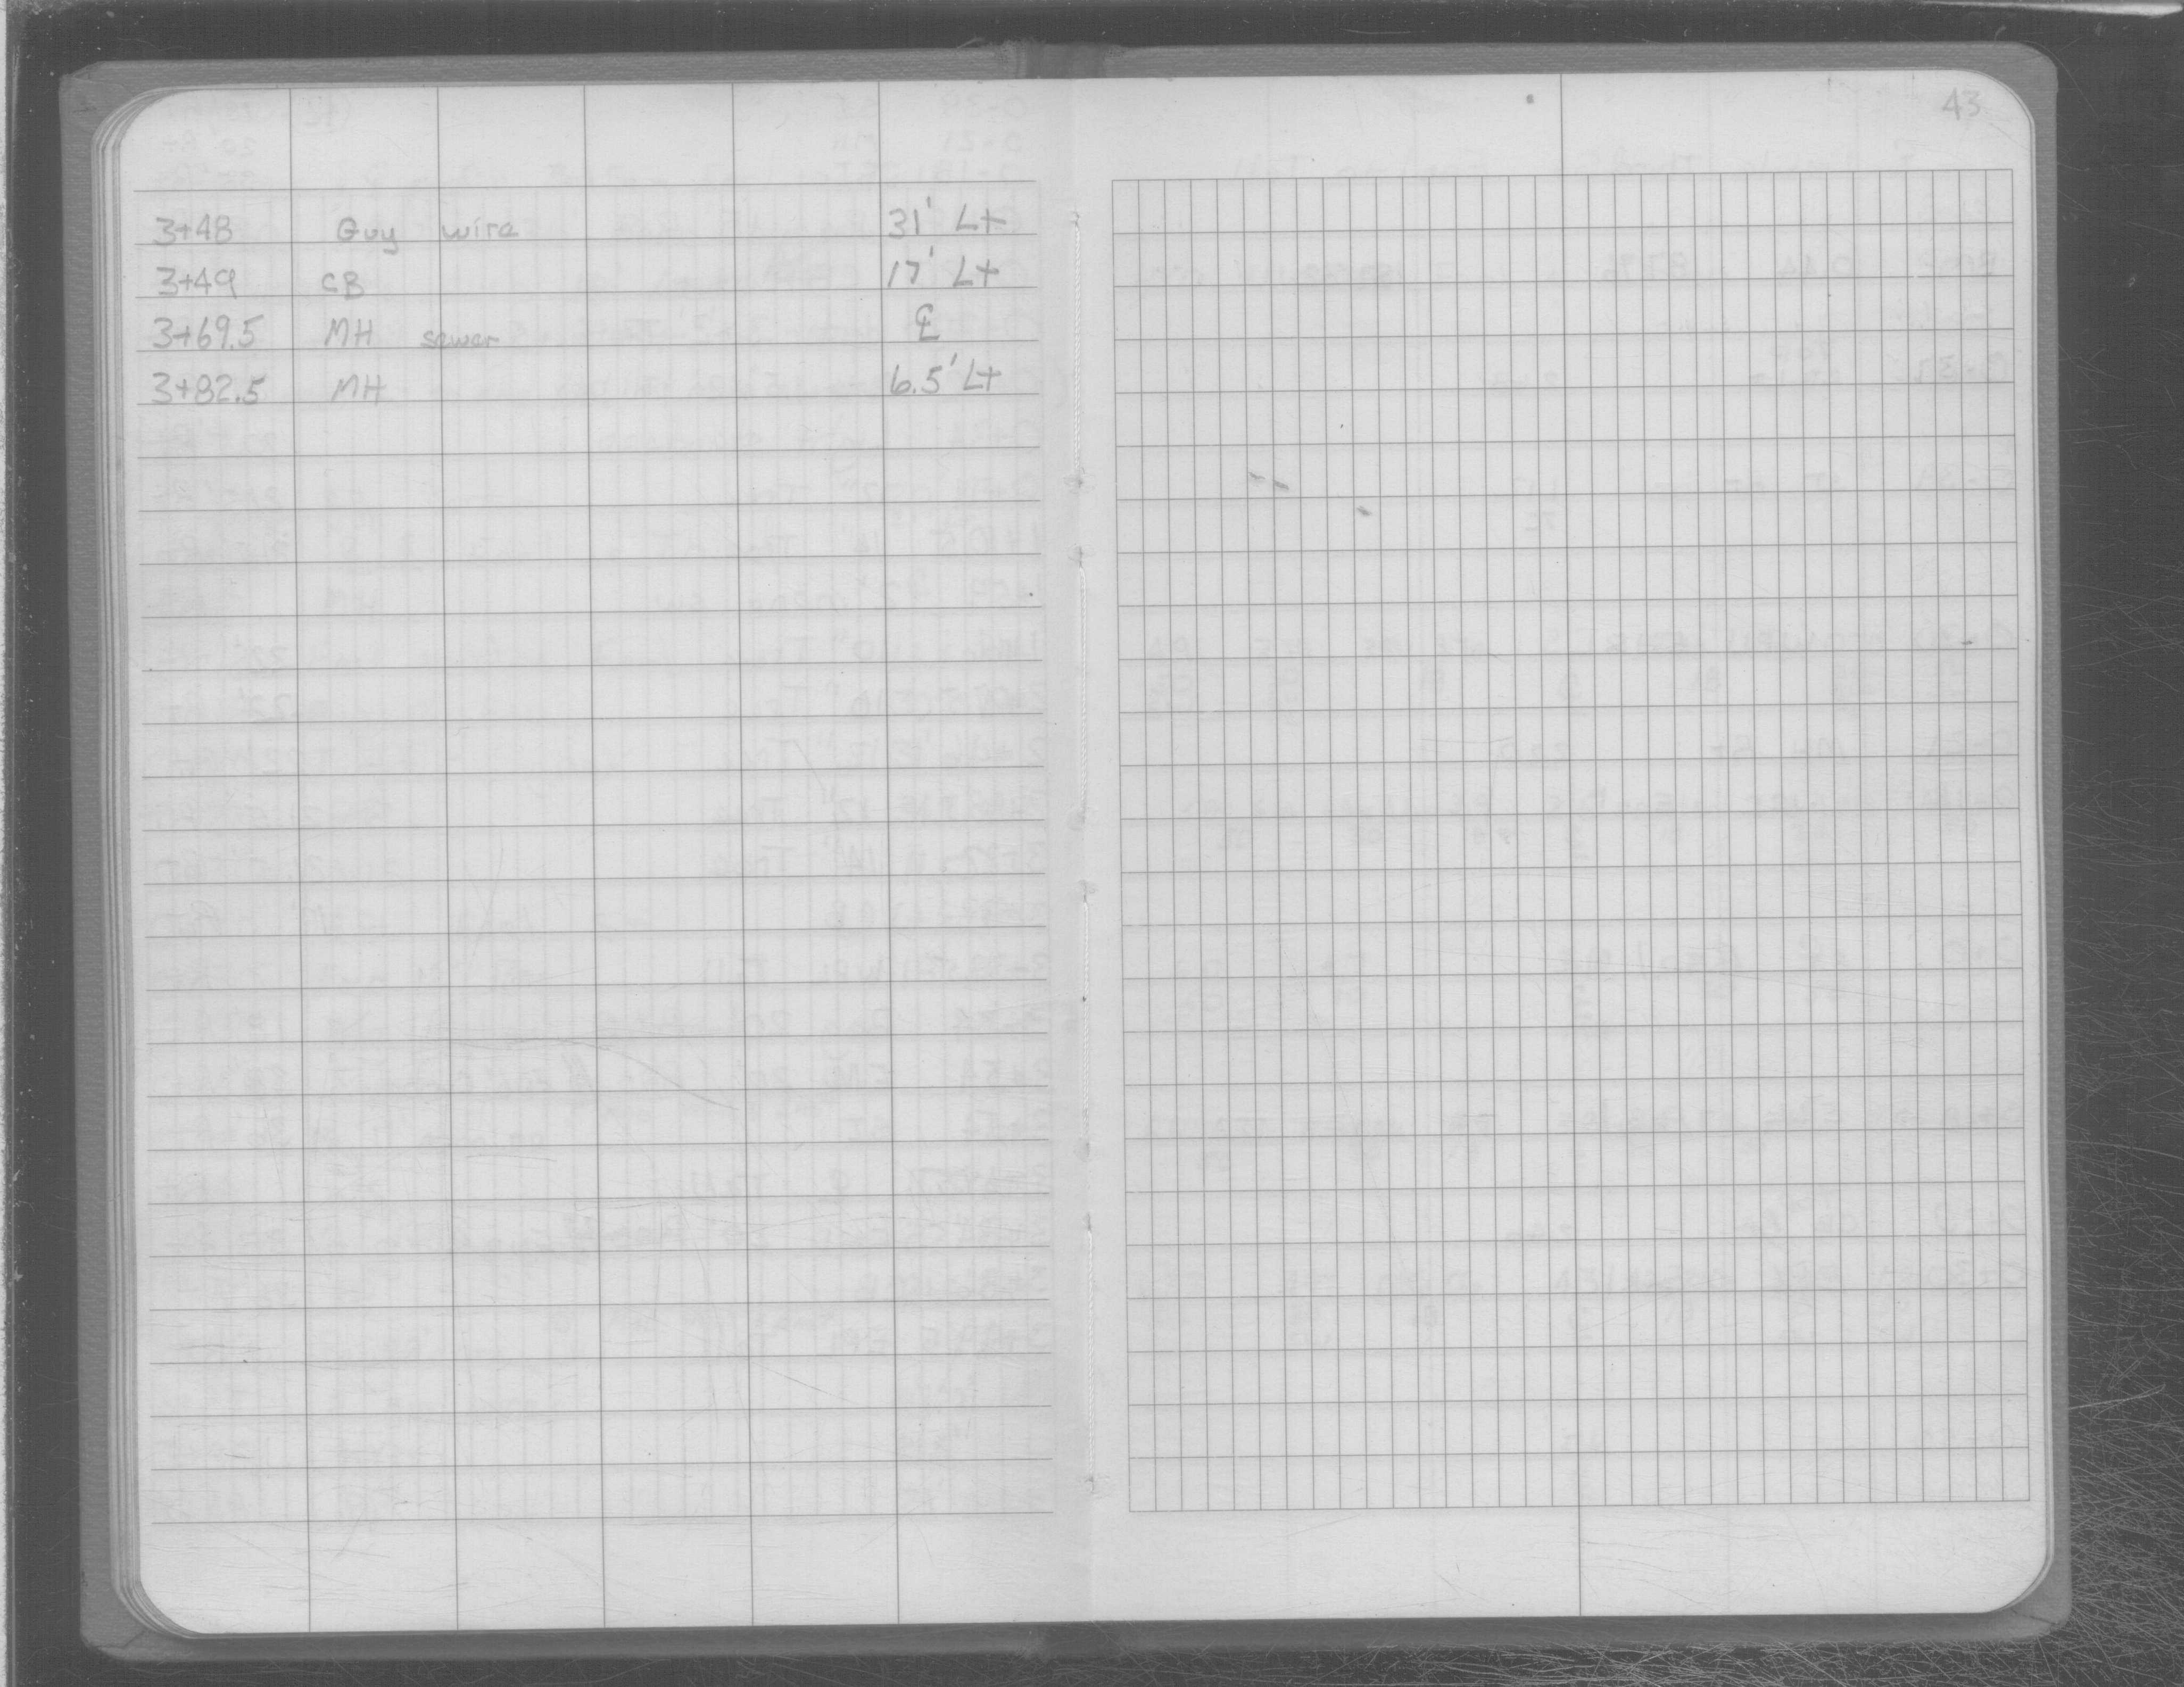 43
3+48 Guy wire 31' Lt
3+49 CB 17' Lt
3+69.5 MH sewer ℄
3+82.5 MH 6.5' Lt